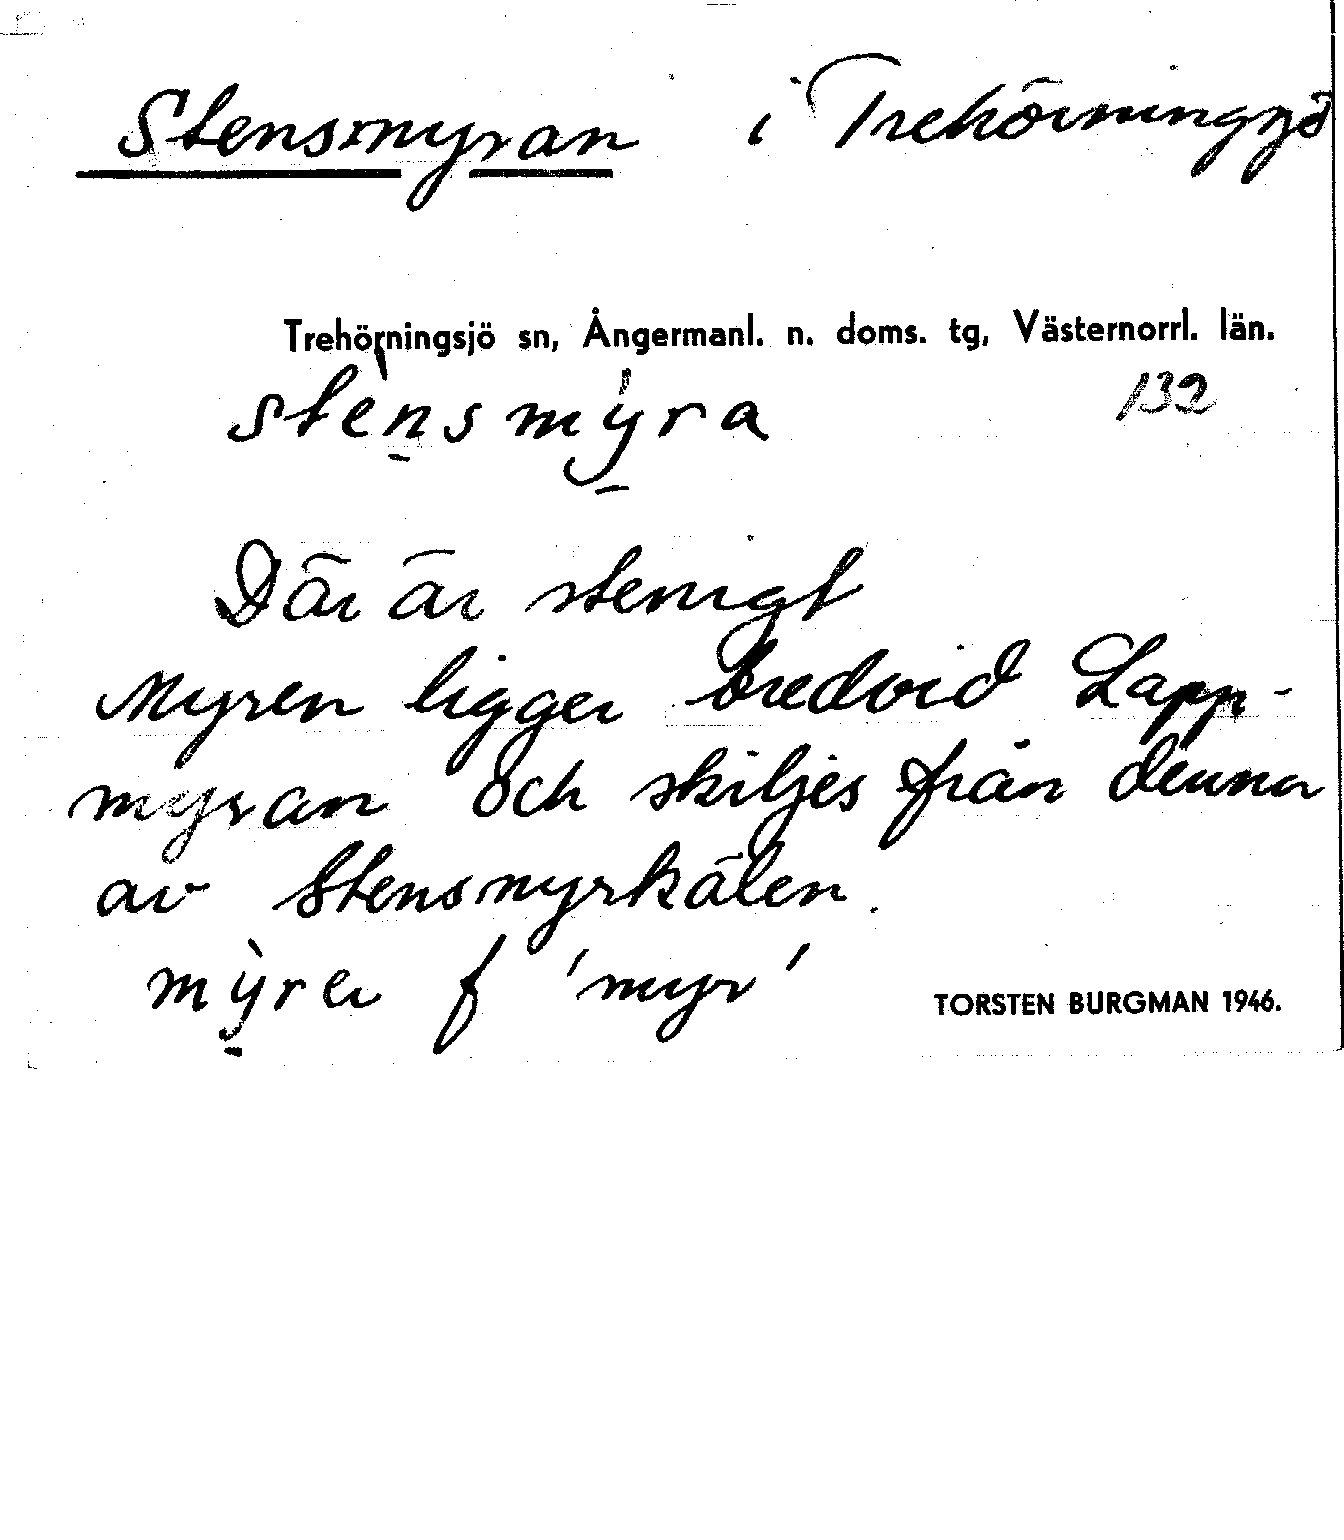 Stensmyran i Trehörningsjö
Trehörningsjö sn, Ångermanl. n. doms. tg, Västernorrl. län.
stènsmýra 132
Där är stenigt
Myren ligger bredvid Lapp-
myran och skiljes från denna
av Stensmyrkälen.
mỳra f 'myr' TORSTEN BURGMAN 1946.